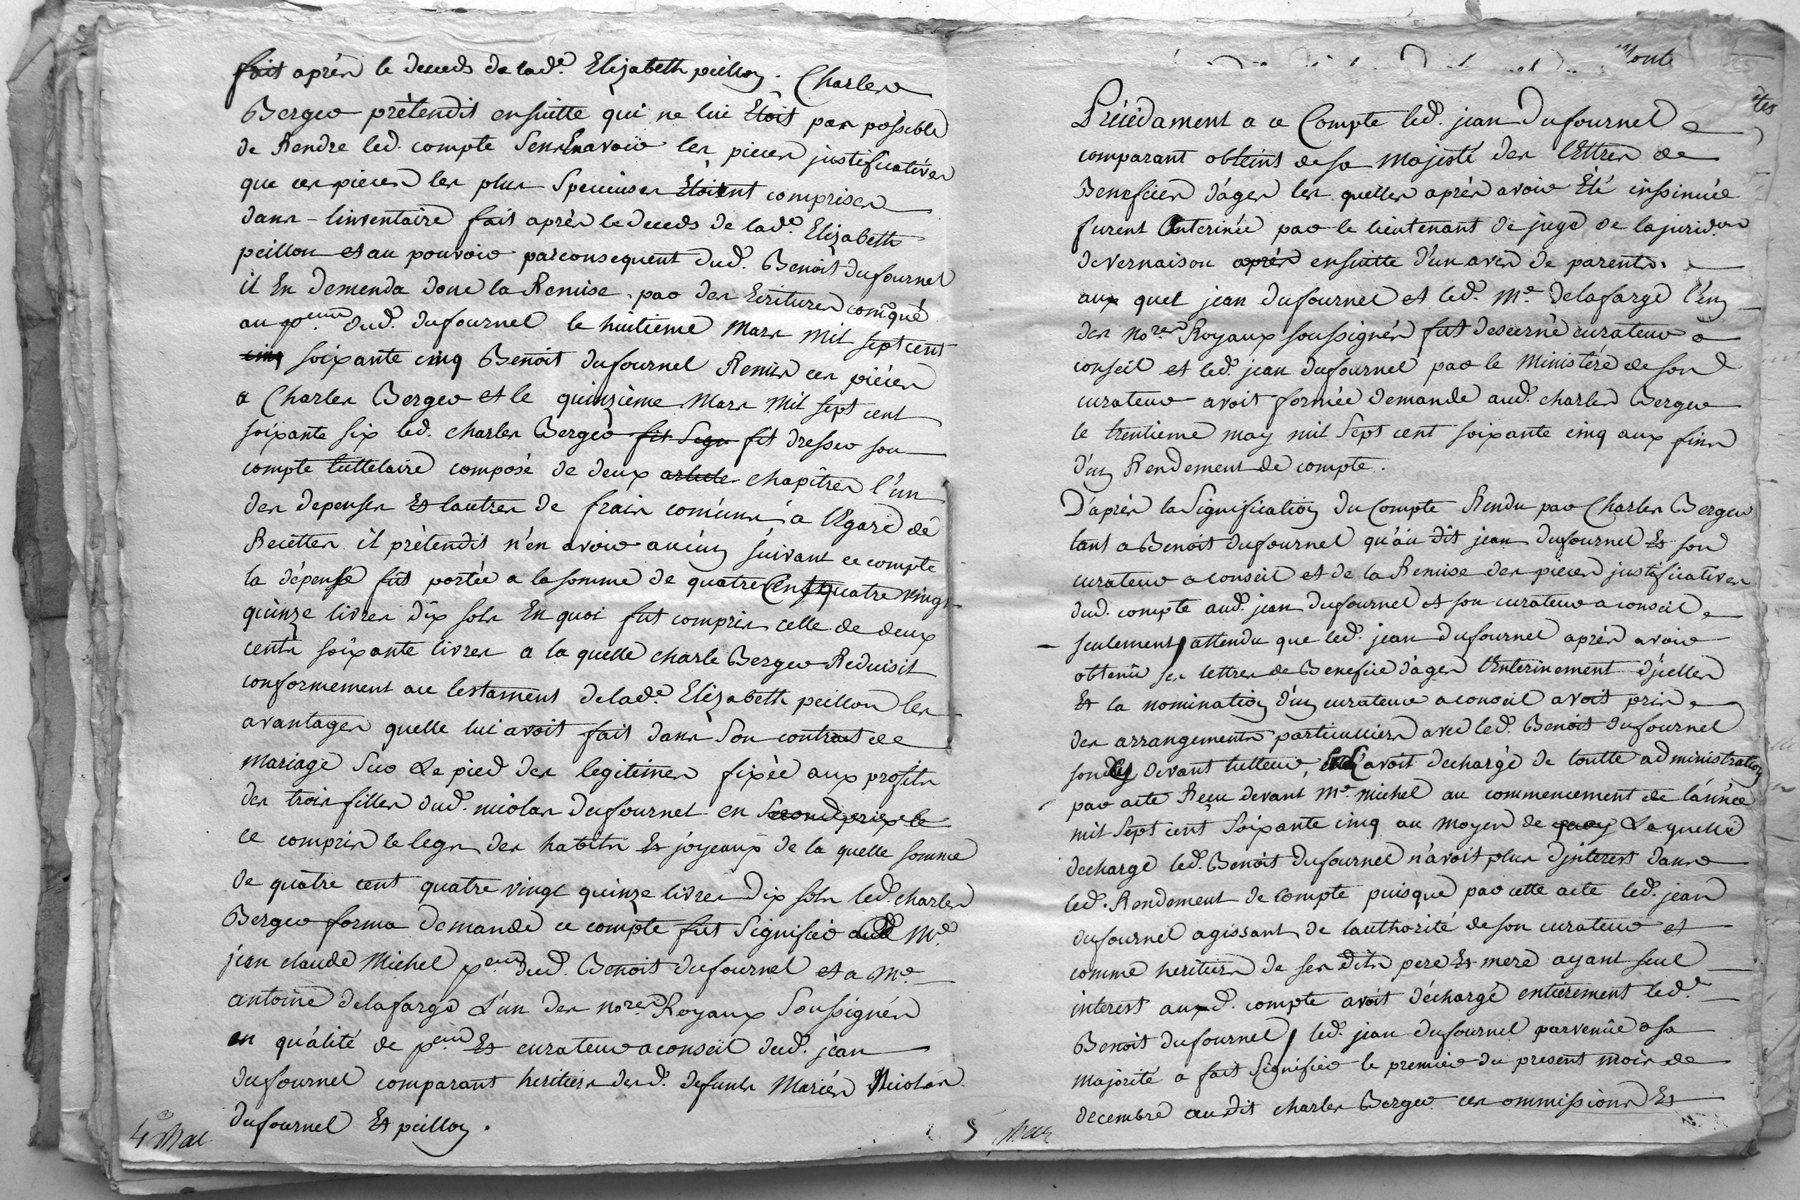 fait après le deceds de lad.e Elizabeth peillon. Charles
Berger prétendit ensuitte qui ne lui Etoit pas possible
de Rendre led. compte Sens En avoir les pieces justificatives
que ces pieces les plus Specieuses Etoient comprises
dans l'inventaire fait après le deceds de lad.e Elizabeth
peillon et au pouvoir par consequent dud. Benoit dufournel
il En demenda donc la Remise par des Ecritures comuniqué
au p.eur dud. dufournel le huitieme Mars Mil sept cent
cinq soixante cinq Benoit dufournel Remis ces piéces
a Charles Berger et le quinzième Mars Mil sept cent
soixante six led. charles Berger fit Sign fit dresser son
compte tuttelaire composé de deux article chapitres l'un
des depenses Et lautres de frais comuns a l'Egard dé
Recettes il prétendit n'en avoir aucun suivant ce compte
la dépense fut portée a la somme de quatre Cent quatre vingt
quinze livres dix sols En quoi fut compris celle de deux
cents soixante livres a la quelle charle Berger Reduisit
conformement au testament de lad.e Elizabeth peillon les
avantages quelle lui avoit fait dans Son contrat de
mariage Sur Le pied des legitimes fixée aux profits
des trois filles dud. nicolas dufournel en
ce compris le legs des habits Et joyeaux de la quelle somme
de quatre cent quatre vingt quinze livres dix sols led. charles
Berger forma demande ce compte fut Signifier aud. M.e
jean claude Michel p.eur dud. Benoit dufournel et a M.e
antoine delafarge L'un des no.res Royaux Soussignés
en quálité de p.eur Et curateur a conseil dud. jean
dufournel comparant heritiers desd. defunts Mariés Nicolas
dufournel Et peillon.
4
Toute
Précédament a ce Compte led. jean Dufournel a
comparant obtins de sa majesté des lettres de
Benefices d'ages les quelles après avoir Été inssinuée
furent Enterinée par le lieutenant de juge de la jurid.on
de vernaison après ensuitte d'un avis de parents
aux quel jean dufournel et led. M.e Delafarge l'un
des no.res Royaux soussignés fut descerné curateur a
conseil et led. jean dufournel par le Ministère de son
curateur avoit formée demande aud. charles Berger
le trentieme may mil sept cent soixante cinq aux fins
d'un Rendement de compte.
D'après la Signification du Compte Rendu par Charles Berger
tant a Benoit dufournel qu'au dit jean dufournel Et son
curateur a conseil et de la Remise des pieces justificatives
dud. compte aud. jean dufournel et son curateur a conseil
seulement, attendu que led. jean dufournel après avoir
obtenû ses lettres de Benefice d'ages l'Enterinement d'jcelles
Et la nomination d'un curateur a conseil avoit pris
des arrangements particulliers avec led. Benoit dufournel
son devant tutteur, avoit dechargé de toutte administration
par acte Reçu devant M.e Michel au commencement de l'année
mil sept cent Soixante cinq au moyen de quoy Laquelle
decharge led. Benoit dufournel n'avoit plus d'jnterest dans
led. Rendement de compte puisque par cette acte led. jean
dufournel agissant de l'authorité de son curateur et
comme heritiers de ses dits pere Et mere ayant seul
interest auxd. compte avoit déchargé entierement led.
Benoit dufournel, led. jean dufournel parvenûe a sa
majorité a fait Signifier le premier du present mois de
decembre audit charles Berger ces ommissions Et
5